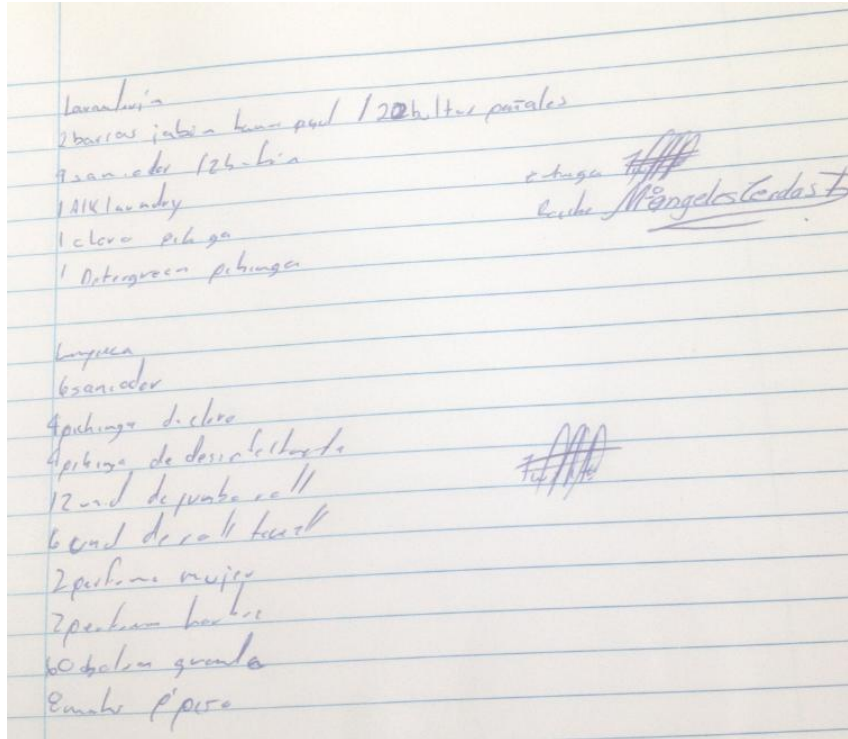 Lavanderia
2 barras jabon / 22 bultos pañales
saniador / 2
1 AlKlaundry
1 cloro pichinga
1 Detergreen pichinga
entrega
Recibe MªAngeles Cerdas
Limpieza
6 saniador
4 pichinga de cloro
4 pichinga de desinfectante
12 und de jumbo roll
6 und de roll towell
2 perfume mujer
2 perfum hombre
60 bolsa grande
2 p' piso